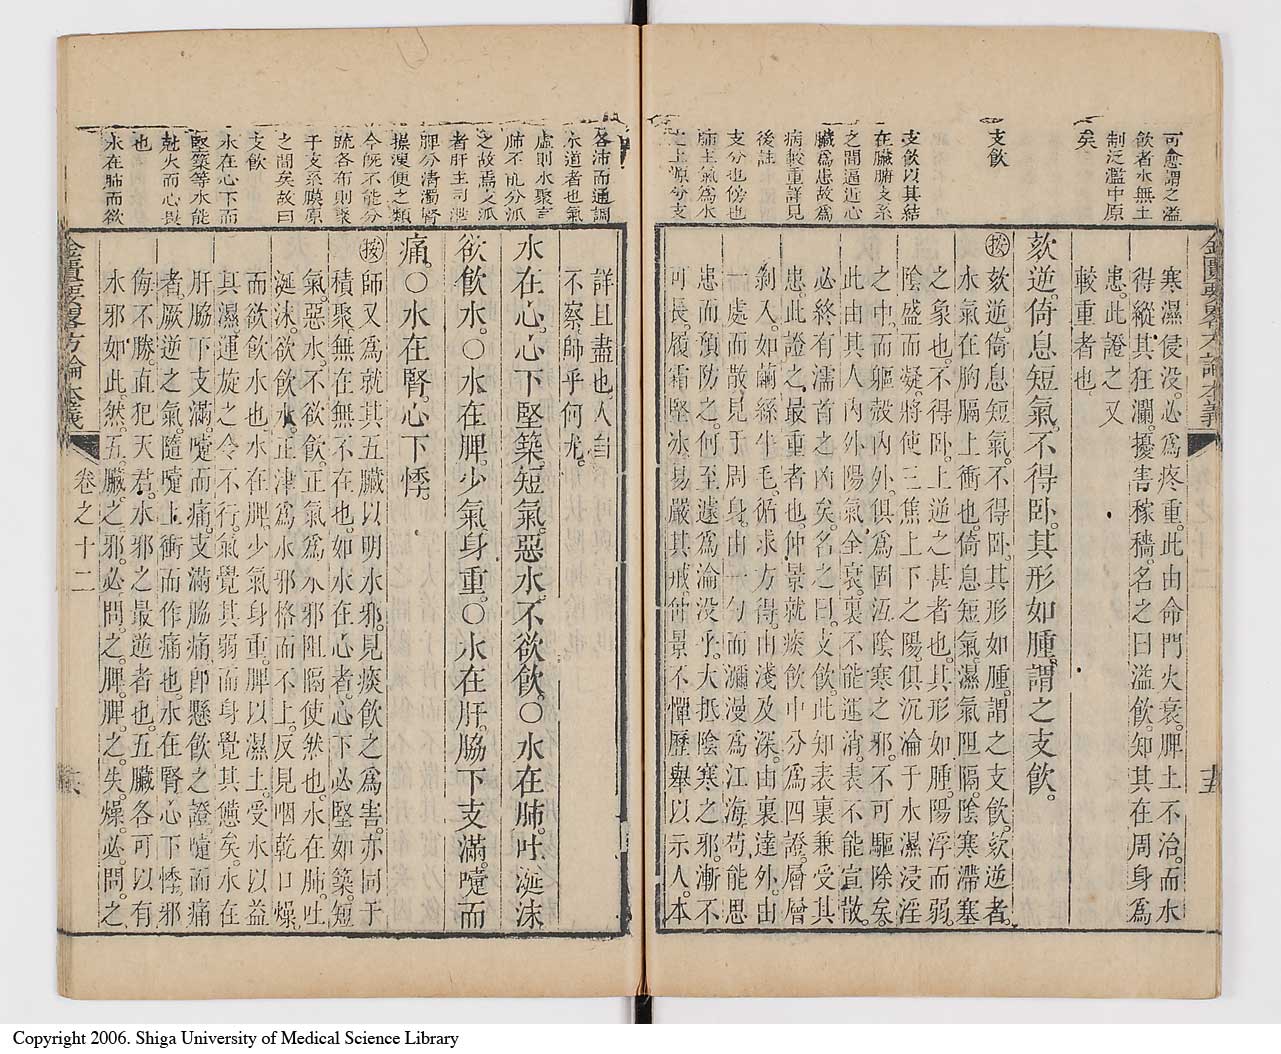 可愈謂之溢
飲者水無土
制泛濫中原
矣
支飲
支飲以其結
在臟腑支系
之間逼近心
臟爲患故爲
病較重詳見
後註
支分也傍也
肺主氣爲水
之上源分支
寒濕侵沒。必爲疼重。此由命門火衰。脾土不治。而水
得縱其狂瀾。擾害稼穡。名之曰溢飲。知其在周身爲
患。此證之又
較重者也。
欬逆。倚息短氣。不得臥。其形如腫。謂之支飲。
按欬逆。倚息短氣。不得臥。其形如腫。謂之支飲。欬逆者。
水氣在胸膈上衝也。倚息短氣。濕氣阻隔陰寒滯塞
之象也。不得臥。上逆之甚者也。其形如腫。陽浮而弱。
陰盛而凝。將使三焦上下之陽。俱沉淪于水濕浸淫
之中。而軀殼內外。俱爲固沍陰寒之邪。不可驅除矣。
此由其人內外陽氣全衰。裏不能運消。表不能宣散。
必終有濡首之凶矣。名之曰。支飲。此知表裏兼受其
患。此證之最重者也。仲景就痰飲中分爲四證。層層
剝入。如繭絲牛毛。俯求方得。由淺及深。由裏達外。由
一處而散見于周身。由一勺而瀰漫爲江海。苟能思
患而預防之。何至遽爲淪没乎。大抵陰寒之邪。漸不
可長。履霜堅冰。易嚴其戒。仲景不憚歷舉以示人。本
金匱要略方論本義
十五
各沛而通調
水道者也氣
虛則水聚言
肺不能分派
之故焉支派
者肝主司泄
脾分清濁腎
操溲便之類
今既不能分
疏各布則聚
于支系膜原
之間矣故曰
支飲
水在心下而
堅築等水能
尅火而心畏
也
水在肺而欲
詳且盡也。人自
不察。師乎何尤。
水在心。心下堅築。短氣。惡水。不欲飲。〇水在肺。吐涎沫
欲飲水。〇水在脾。少氣身重。〇水在肝。脇下支滿。嚏而
痛。〇水在腎。心下悸。
按師又爲就其五臟以明水邪。見痰飲之爲害。亦同于
積聚。無在無不在也。如水在心者。心下必堅如築。短
氣。惡水。不欲飲。正氣爲水邪阻隔使然也。水在肺。吐
涎沫。欲飲水。正津爲水邪格而不上。反見咽乾口燥
而欲飲水也。水在脾。少氣身重。脾以濕土。受水以益
其濕。運旋之令不行。氣覺其弱。而身覺其憊矣。水在
肝。脇下支滿。嚏而痛。支滿脇痛。卽懸飲之證。嚏而痛
者。厥逆之氣。隨嚏上衝而作痛也。水在腎。心下悸。邪
侮不勝。直犯天君。水邪之最逆者也。五臟各可以有
水邪如此。然五臟之邪。必問之脾。脾之失燥。必問之
金匱要略方論本義
卷之十二
十六
Copyright 2006. Shiga University of Medical Science Library